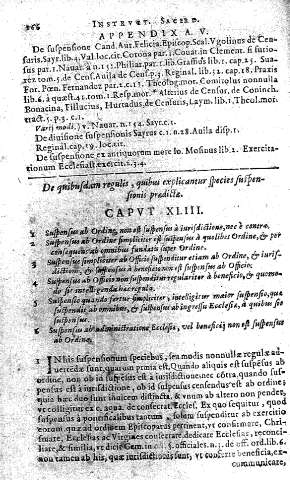 266 INSTRVCT. SACERD.
APPENDIX A. V.
De suspensione Cand. Aut. Felicis, Episcop. Scal. Vgolinus de Cen-
suris. Sayr. lib.4. Val. loc. cit. Corona par.1. Couar. in Clement. si furio-
sus par.1. Nauar. à n.151. Philiar. par.1. lib. Graffis lib.1. cap.25. Sua-
rez tom.5. de Cens. Auila de Censf. p.3. Reginal. lib.32. cap.18. Praxis
For. Pœn. Fernandez par.2. c.13. Theolog. mor. Comitolus nonnulla
lib.6. à quæst. 41. tom.1. Resp. mor. Alterius de Censur. de Coninch.
Bonacina, Filliucius, Hurtadus, de Censuris, Laym. lib.1. Theol. mor.
tract.5. p.3. c.1.
Varij modi, v. Nauar. n.152. Sayr. c.1.
De diuisione suspensionis Sayrus c.1. n.18. Auila disp.1.
Reginal. cap.19. loc. cit.
De suspensione ex antiquorum more Io. Mosinus lib.2. Exercita-
tionum Ecclesiast. exercit.5.34.
De quibusdam regulis, quibus explicantur species suspen-
sionis prædictæ.
CAPVT XLIII.
1 Suspensus ab Ordine, non est suspensus à iurisdictione, nec è contra.
2 Suspensus ab Ordine simpliciter est suspensus à quolibet Ordine, & per
consequens ab omnibus fundatis super Ordine.
3 Suspensus simpliciter ab Officio suspenditur etiam ab Ordine, & iurisf-
dictione, & suspensus à beneficio non est suspensus ab Officio.
4 Suspensus ab Officio non suspenditur regulariter à beneficio, & quomo-
do sit intelligenda hæc regula.
Suspensio quando fertur simpliciter, intelligitur maior suspensio, quæ
suspendit ab omnibus, & suspensus ab ingressu Ecclesiæ, à quibus sit
suspensus.
5 Suspensus ab administratione Ecclesiæ, vel beneficij non est suspensus
ab Ordine.
1 IN his suspensionum speciebus, seu modis nonnullæ regulæ ad-
uertendæ sunt, quarum prima est. Quando aliquis est suspensus ab
ordine, non ob id suspensus est à iurisdictione: nec contra, quando sus-
pensus est à iurisdictione, ob id suspensus censendus est ab ordine;
quia hæc duo sunt inuicem distincta, & vnum ab altero non pendet,
vt colligitur ex c. aqua. de consecrat. Eccles. Ex quo sequitur, quod
suspensus à pontificalibus tantum, solum suspenditur ab exercitio
eorum, quæ ad ordinem Episcopatus pertinent, vt consecrare, Chri-
smare, Ecclesias ac Virgines consecrare, dedicare Ecclesias, reconci-
liare, & similia, vt dicit Gem. c.1. §. officialis. n.5. de off. ord. lib.6.
non tamen ab his, quæ iurisdictionis sunt, vt conferre beneficia, ex-
communicare,